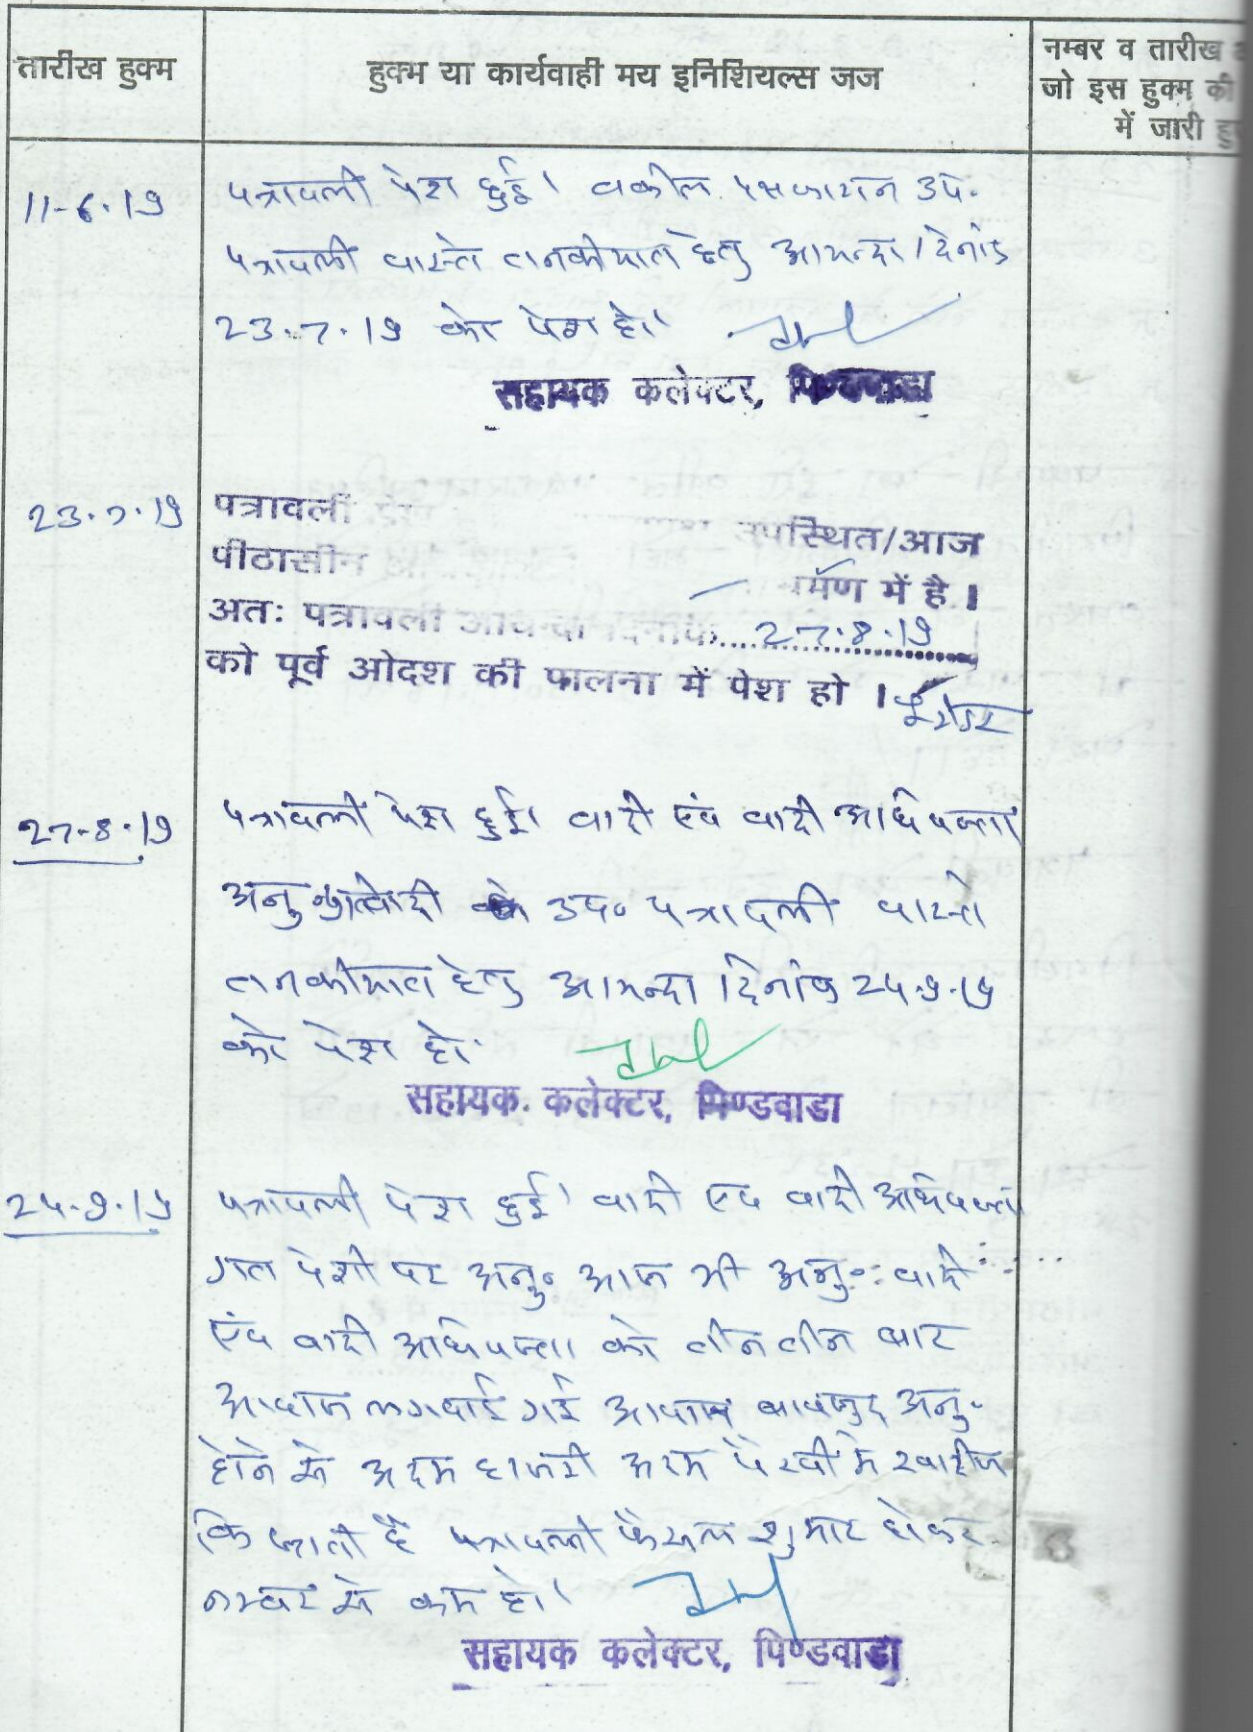 तारीख हुक्म
हुक्म या कार्यवाही मय इनिशियल्स जज
नम्बर व तारीख
जो इस हुक्म की
में जारी
11-6-19
पत्रावली पेश हुई। वकील पक्षकारान उप०
पत्रावली वास्ते तनकीयात हेतु आयन्दा दिनांक
23-7-19 को पेश हो।
सहायक कलेक्टर, पिण्डवाडा
23-7-19
पत्रावली पेश उपस्थित/आज
पीठासीन में है।
अतः पत्रावली आयन्दा दिनांक....27-8-19
को पूर्व ओदश की पालना में पेश हो।
27-8-19
पत्रावली पेश हुई। वादी एंव वादी अधिवक्ता
अनु० उप० पत्रावली वास्ते
तनकीयात हेतु आयन्दा दिनांक 24-9-19
को पेश हो।
सहायक कलेक्टर, पिण्डवाडा
24-9-19
पत्रावली पेश हुई। वादी एंव वादी अधिवक्ता
गत पेशी पर अनु० आज भी अनु० वादी
एंव वादी अधिवक्ता को तीन तीन बार
आवाज लगवाई गई आवाज बावजुद अनु०
होने से अदम हाजरी अदम पैरवी मे खारीज
कि जाती है पत्रावली फैसल शुमार होकर
नम्बर से कम हो।
सहायक कलेक्टर, पिण्डवाडा